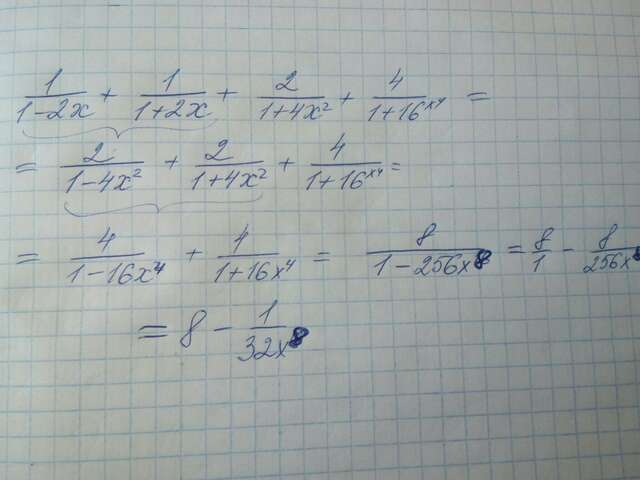 1/(1-2x) + 1/(1+2x) + 2/(1+4x²) + 4/(1+16x⁴) =
= 2/(1-4x²) + 2/(1+4x²) + 4/(1+16x⁴) =
= 4/(1-16x⁴) + 4/(1+16x⁴) = 8/(1-256x⁸) = 8/1 - 8/256x⁸
= 8 - 1/32x⁸